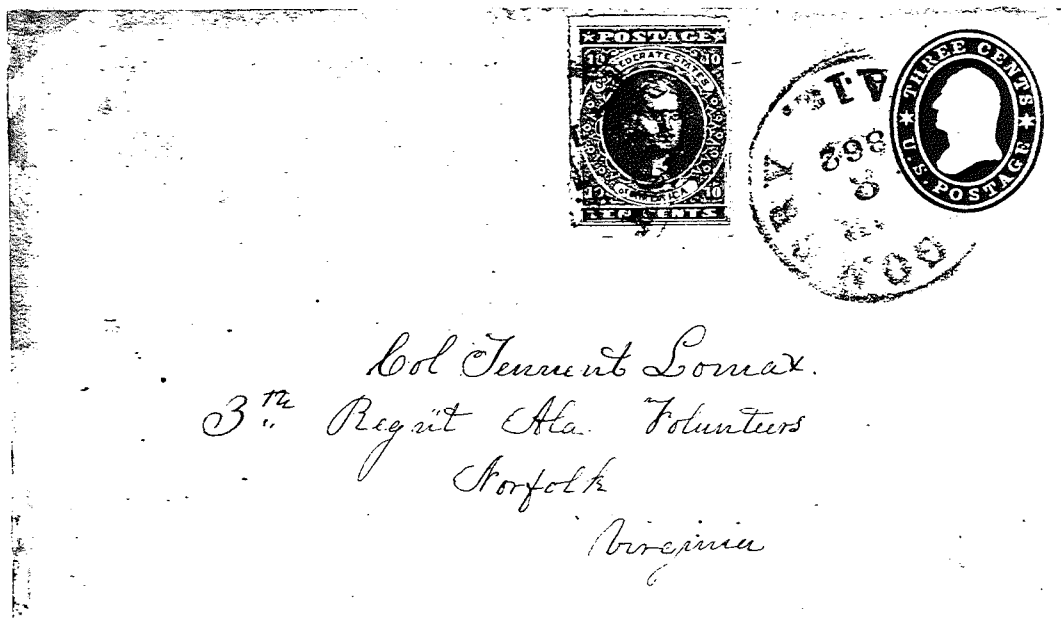 ★POSTAGE★
10 10
CONFEDERATE STATES
OF AMERICA
10 10
TEN CENTS
★ THREE CENTS ★
U.S. POSTAGE
AL
Col Tennent Lomax.
3th Regnt Ala. Volunteers
Norfolk
Virginia